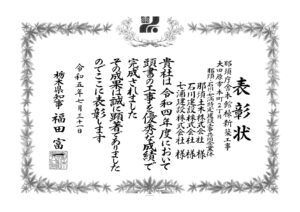 表彰状
那須庁舎本館棟新築工事
大田原市本町2丁目
那須土木株式会社 様
石川建設株式会社 様
七浦建設株式会社 様
貴社は令和四年度において
頭書の工事を優秀な成績で
完成されました
その成果は誠に顕著でありました
のでここに表彰します
令和五年七月三十一日
栃木県知事 福田富一